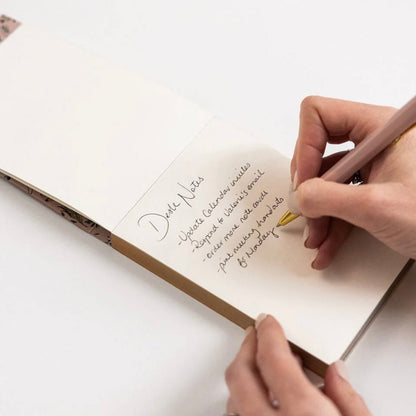 Desk Notes
- Update Calendar invites
- Respond to Valerie's email
- order more note cards
- print meeting handouts
for Monday